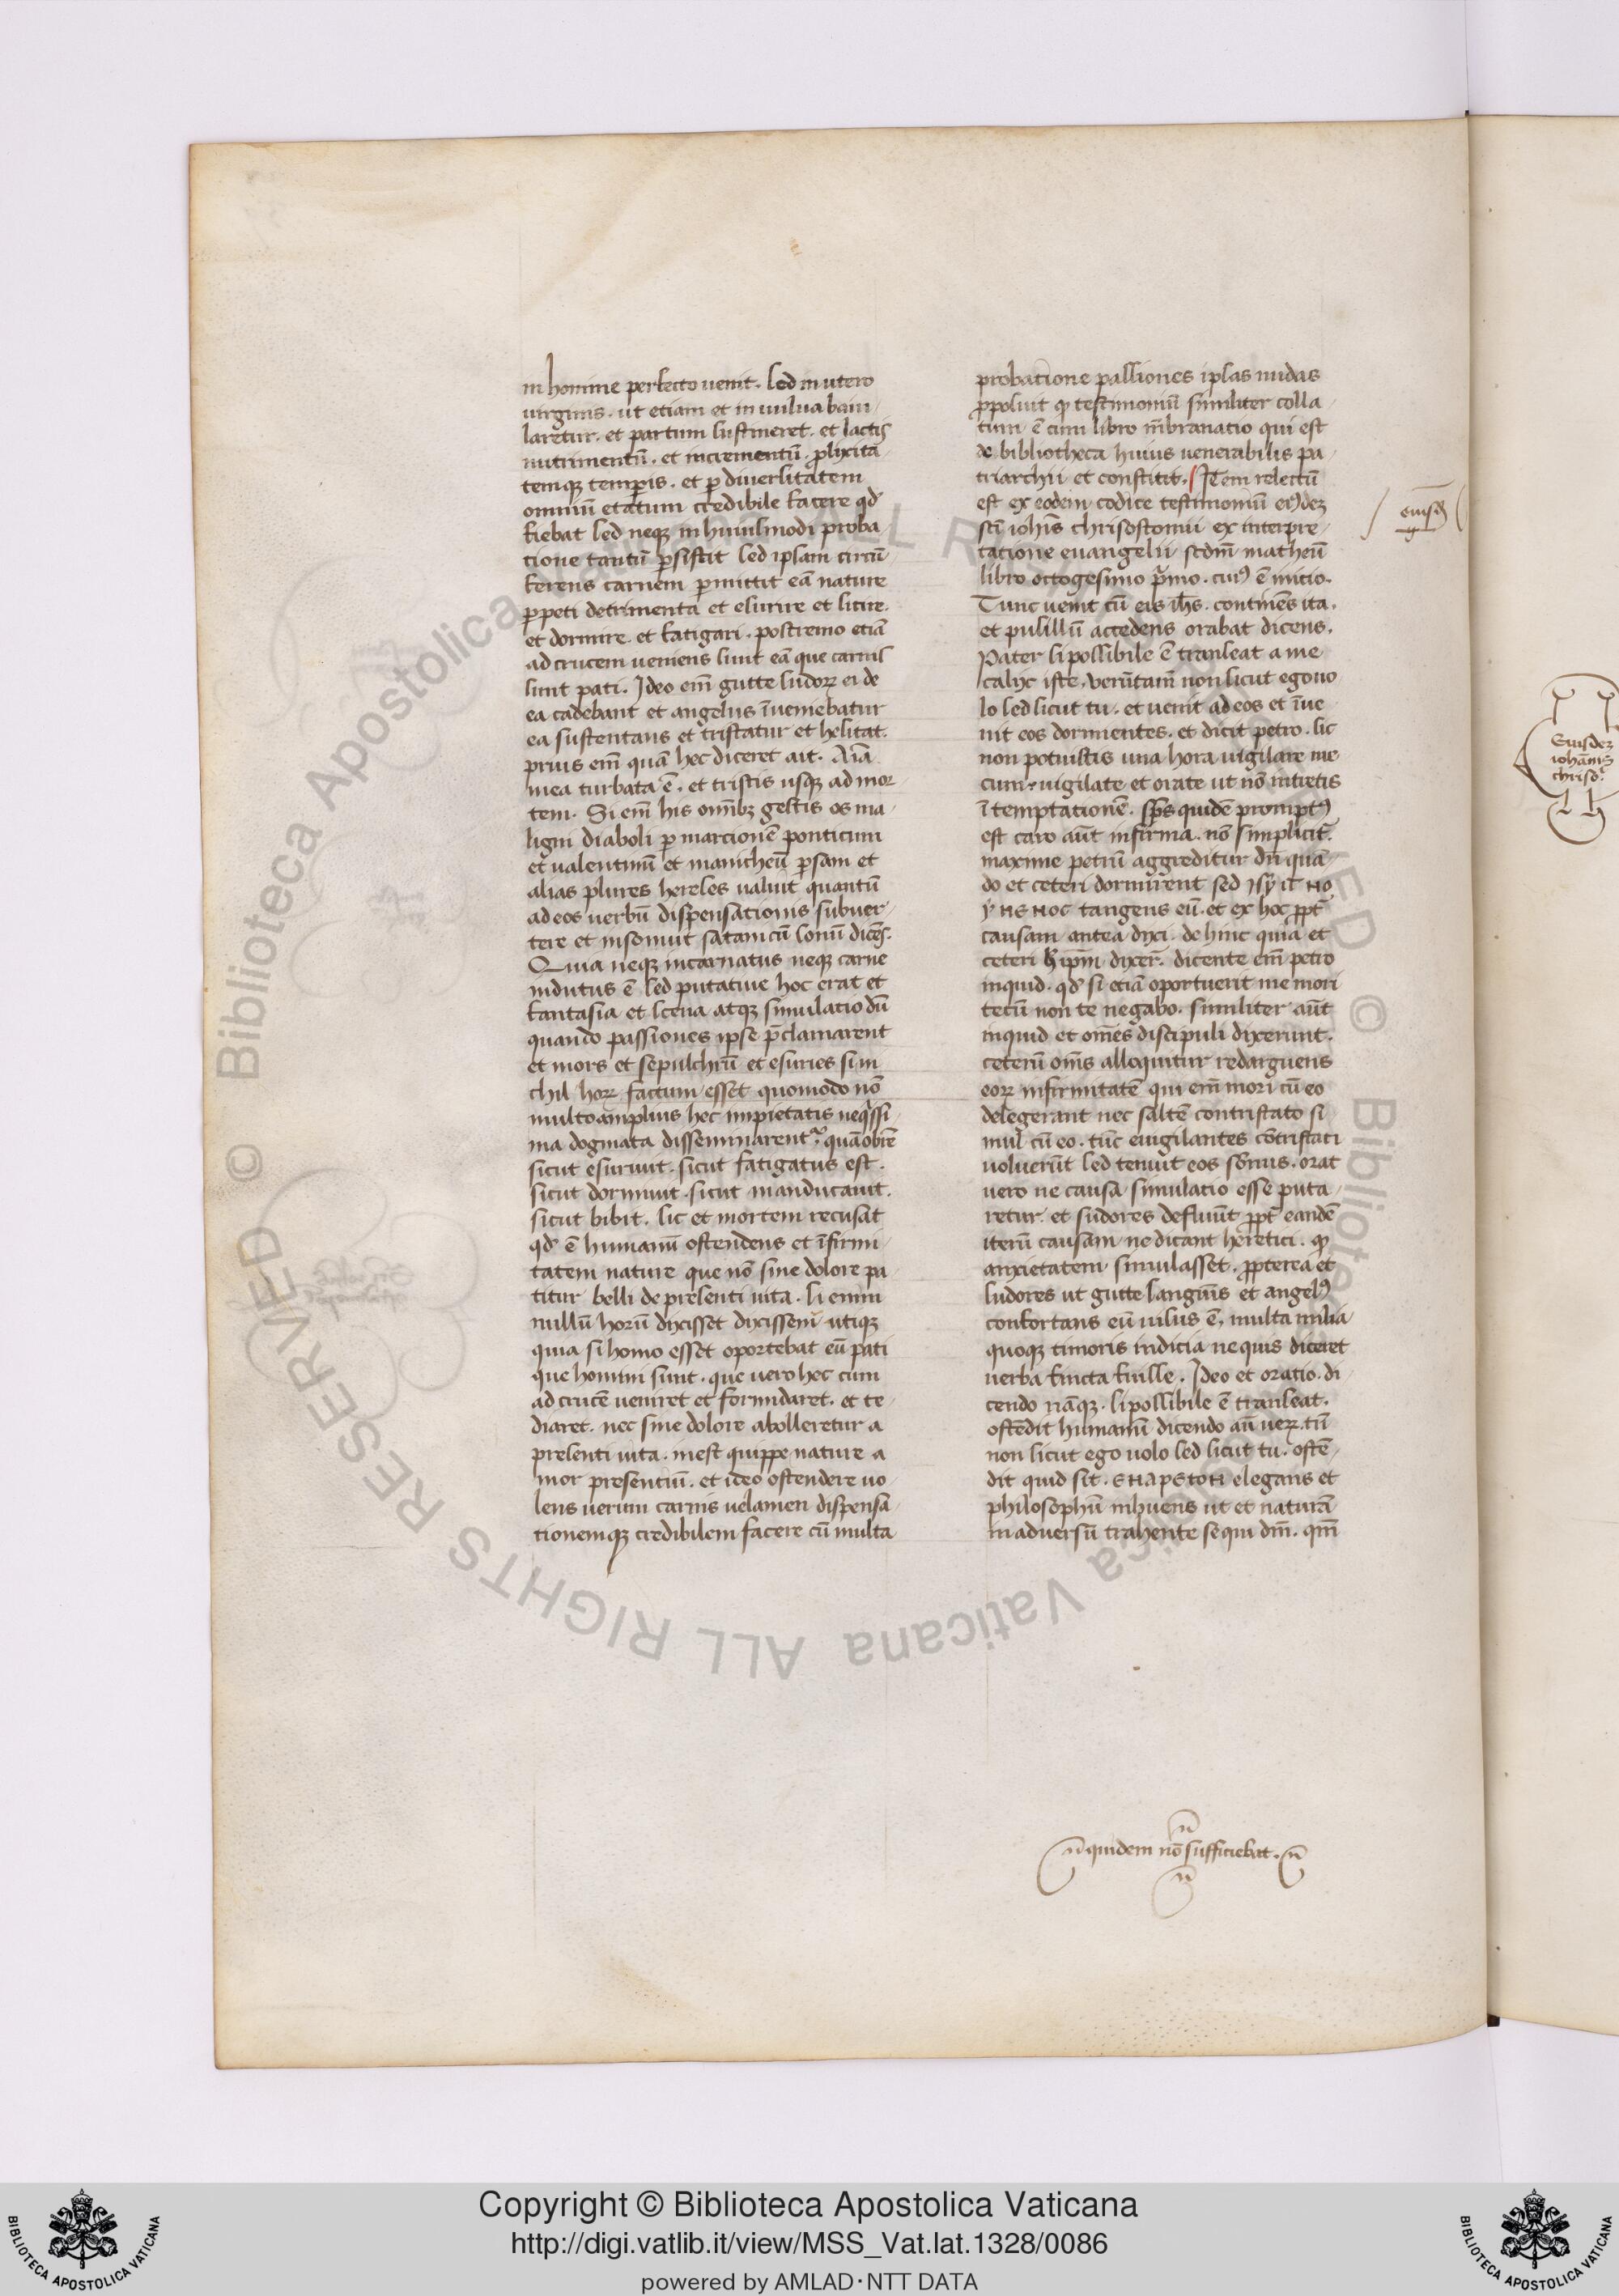 in homine perfecto uenit. sed in utero
uirginis. ut etiam et in uulua baiu
laretur. et partum sustineret. et lactis
nutrimentū. et incrementū. ꝓlixita
temqꝫ temꝑis. et ꝑ diuersitatem
omniū etatum credibile facere qđ
fiebat sed neqꝫ in huiusmodi proba
tione tantū ꝑsistit sed ipsam circū
ferens carnem ꝑmittit eā nature
ꝑpeti detrimenta et esurire et sitire.
et dormire. et fatigari. postremo etiā
ad crucem ueniens sinit eā que carnis
sunt pati. Ideo em̄ gutte sudoꝝ ei de
ea cadebant et angelus īueniebatur
ea sustentans et tristatur et hesitat.
prius em̄ quā hec diceret ait. Aīa
mea turbata ē. et tristis usqꝫ ad mor
tem. Si em̄ his om̄ibꝫ gestis os ma
ligni diaboli ꝑ marcionē ponticum
et ualentinū et manicheū ꝑsam et
alias plures hereses ualuit quantū
ad eos uerbū dispensationis subuer
tere et insonuit satanicū sonū dicēs.
Quia neqꝫ incarnatus neqꝫ carne
indutus ē sed putatiue hoc erat et
fantasia et scena atqꝫ simulatio dū
quando passiones ipse p̄clamarent
et mors et sepulchrū et esuries si ni
chil hoꝝ factum esset quomodo nō
multo amplius hec impietatis neq̄ssi
ma dogmata disseminarent᷑. quāobrē
sicut esuriuit. sicut fatigatus est.
sicut dormiuit. sicut manducauit.
sicut bibit. sic et mortem recusat
qđ ē humanū ostendens et īfirmi
tatem nature que nō sine dolore pa
titur belli de presenti uita. si enim
nullū horū dixisset dixissem̄ utiqꝫ
quia si homo esset oportebat eū pati
que homini sunt. que uero hec cum
ad crucē ueniret et formidaret. et te
diaret. nec sine dolore abolleretur a
presenti uita. inest quippe nature a
mor presentiū. et ideo ostendere uo
lens uerum carnis uelamen dispensa
tionemqꝫ credibilem facere cū multa
probatione passiones ipsas nudas
ꝓposuit ꝙ testimoniū similiter colla
tum ē cum libro mēbranacio qui est
de bibliotheca huius uenerabilis pa
triarchii et constitit. Itē em relectū
est ex eodem codice testimonium eiꝰdeꝫ
sc̄i ioh̄is chrisostomii ex interpre
tatione euangelii scdm̄ matheū
libro octogesimo p̄mo. cuiꝰ ē initio.
Tunc uenit cū eis ih̄s. continēs ita.
et pusillū accedens orabat dicens.
Pater si possibile ē transeat a me
calix iste. uerūtam̄ non sicut ego uo
lo sed sicut tu. et uenit ad eos et īue
nit eos dormientes. et dicit petro. sic
non potuistis una hora uigilare me
cum. uigilate et orate ut nō intretis
ī temptationē. sp̄s quidē promptꝰ
est caro aūt infirma. nō simplicit᷑
maxime petrū aggreditur dn̄ quā
do et ceteri dormirent sed
tangens eū. et ex hoc ꝓpt᷑
causam antea dixi. de hinc quia et
ceteri h̄ ip̄m dixer̄. dicente em̄ petro
inquid. qđ si etiā oportuerit me mori
tecū non te negabo. similiter aūt
inquid et om̄es discipuli dixerunt.
ceterū om̄s alloquitur redarguens
eoꝝ infirmitatē qui em̄ mori cū eo
delegerant nec saltē contristato si
mul cū eo. tūc euigilantes cōtristari
uoluerūt sed tenuit eos sōnus. orat
uero ne causa simulatio esse puta
retur. et sudores defluūt ꝓpt᷑ eandē
iterū causam ne dicant heretici. ꝙ
anxietatem simulasset. ꝓpterea et
sudores ut gutte sanguīs et angelꝰ
confortans eū uisus ē. multa milia
quoqꝫ timoris indicia ne quis diceret
uerba fincta fuisse. Ideo et oratio. di
cendo nāqꝫ. si possibile ē transeat.
ostēdit humanū dicendo aū ueꝝ. tū
non sicut ego uolo sed sicut tu. ostē
dit quid sit. elegans et
philosophū inbuens ut et naturā
in aduersū trahente sequi dm̄. qm̄
eiusđ
ñ quidem nō sufficiebat. ñ
Eiusdeꝫ
iohānis
chrisō.
© Biblioteca Apostolica Vaticana ALL RIGHTS RESERVED
Copyright © Biblioteca Apostolica Vaticana
http://digi.vatlib.it/view/MSS_Vat.lat.1328/0086
powered by AMLAD·NTT DATA
BIBLIOTECA APOSTOLICA VATICANA
BIBLIOTECA APOSTOLICA VATICANA